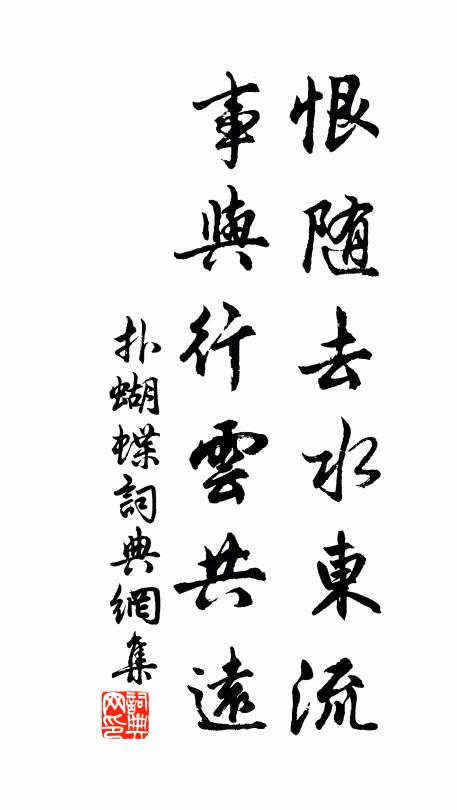 恨随去水東流
事與行雲共遠
扑蝴蝶詞典網集
詞典
网印